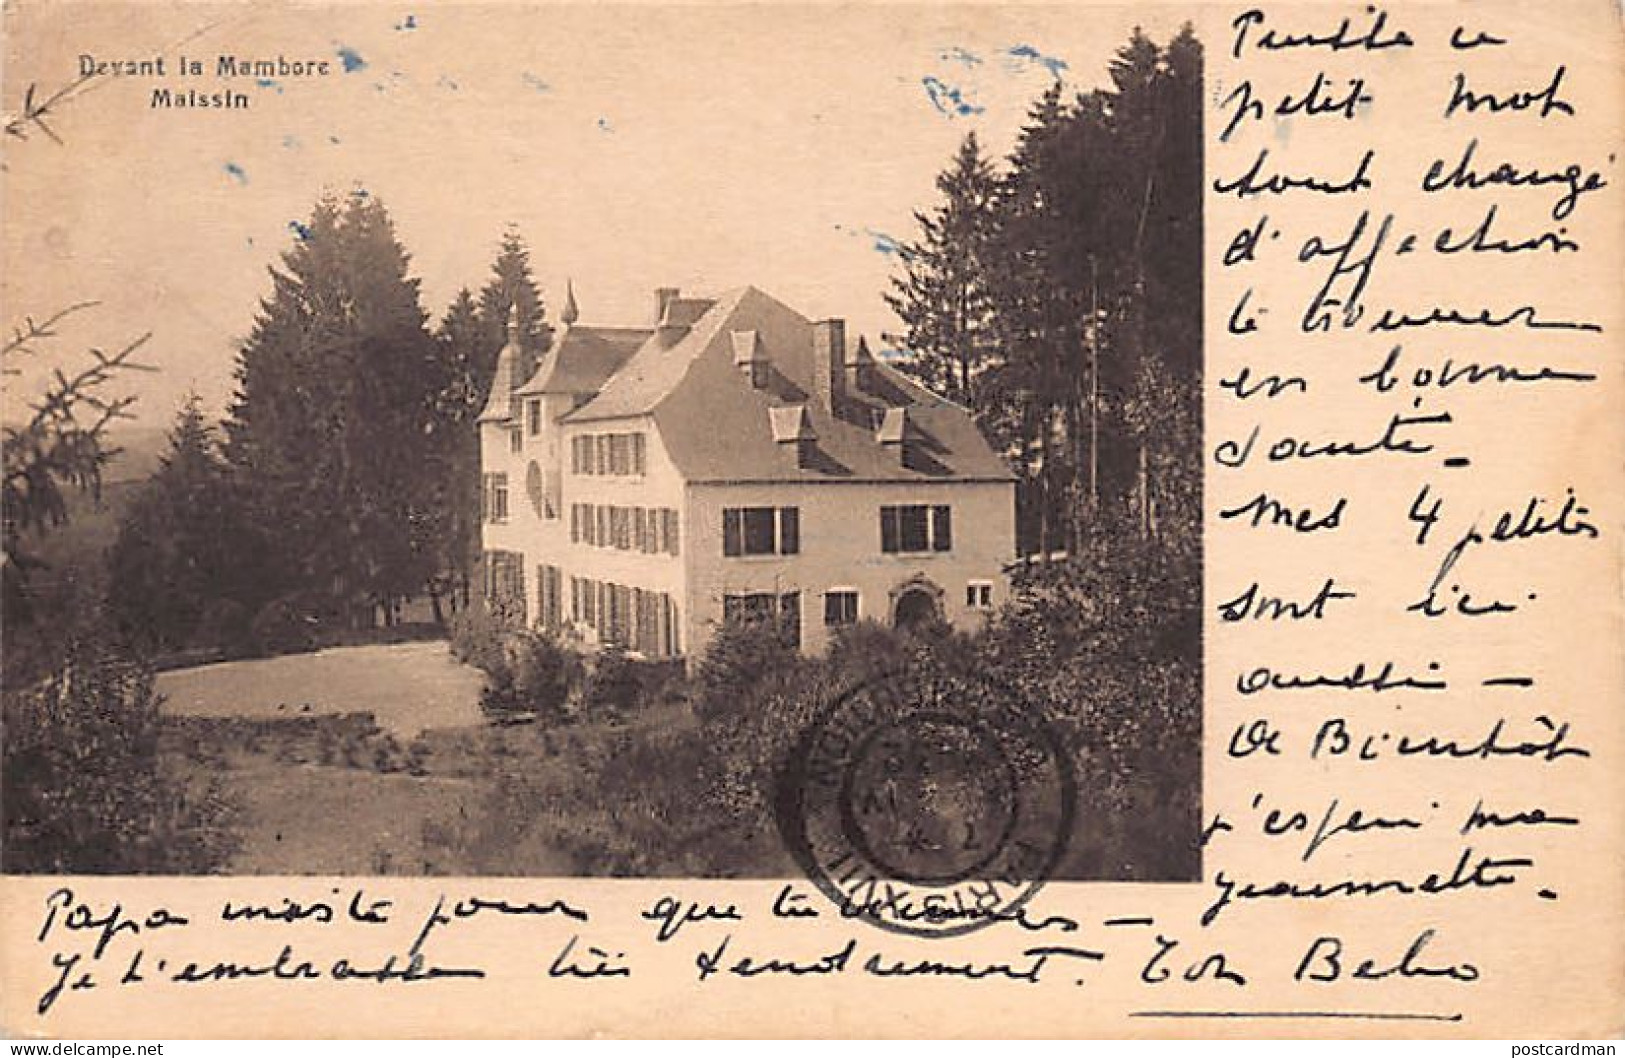 Devant la Mambore
Maissin
Puisse ce
petit mot
tout changé
d'affection
te trouver
en bonne
santé_
Mes 4 petits
sont ici
aussi –
A Bientôt
j'espère ma
Jeannette.
Papa insiste pour que tu viennes –
Je t'embrasse très tendrement. Ton Bebo
PARIS XVII
postcardman